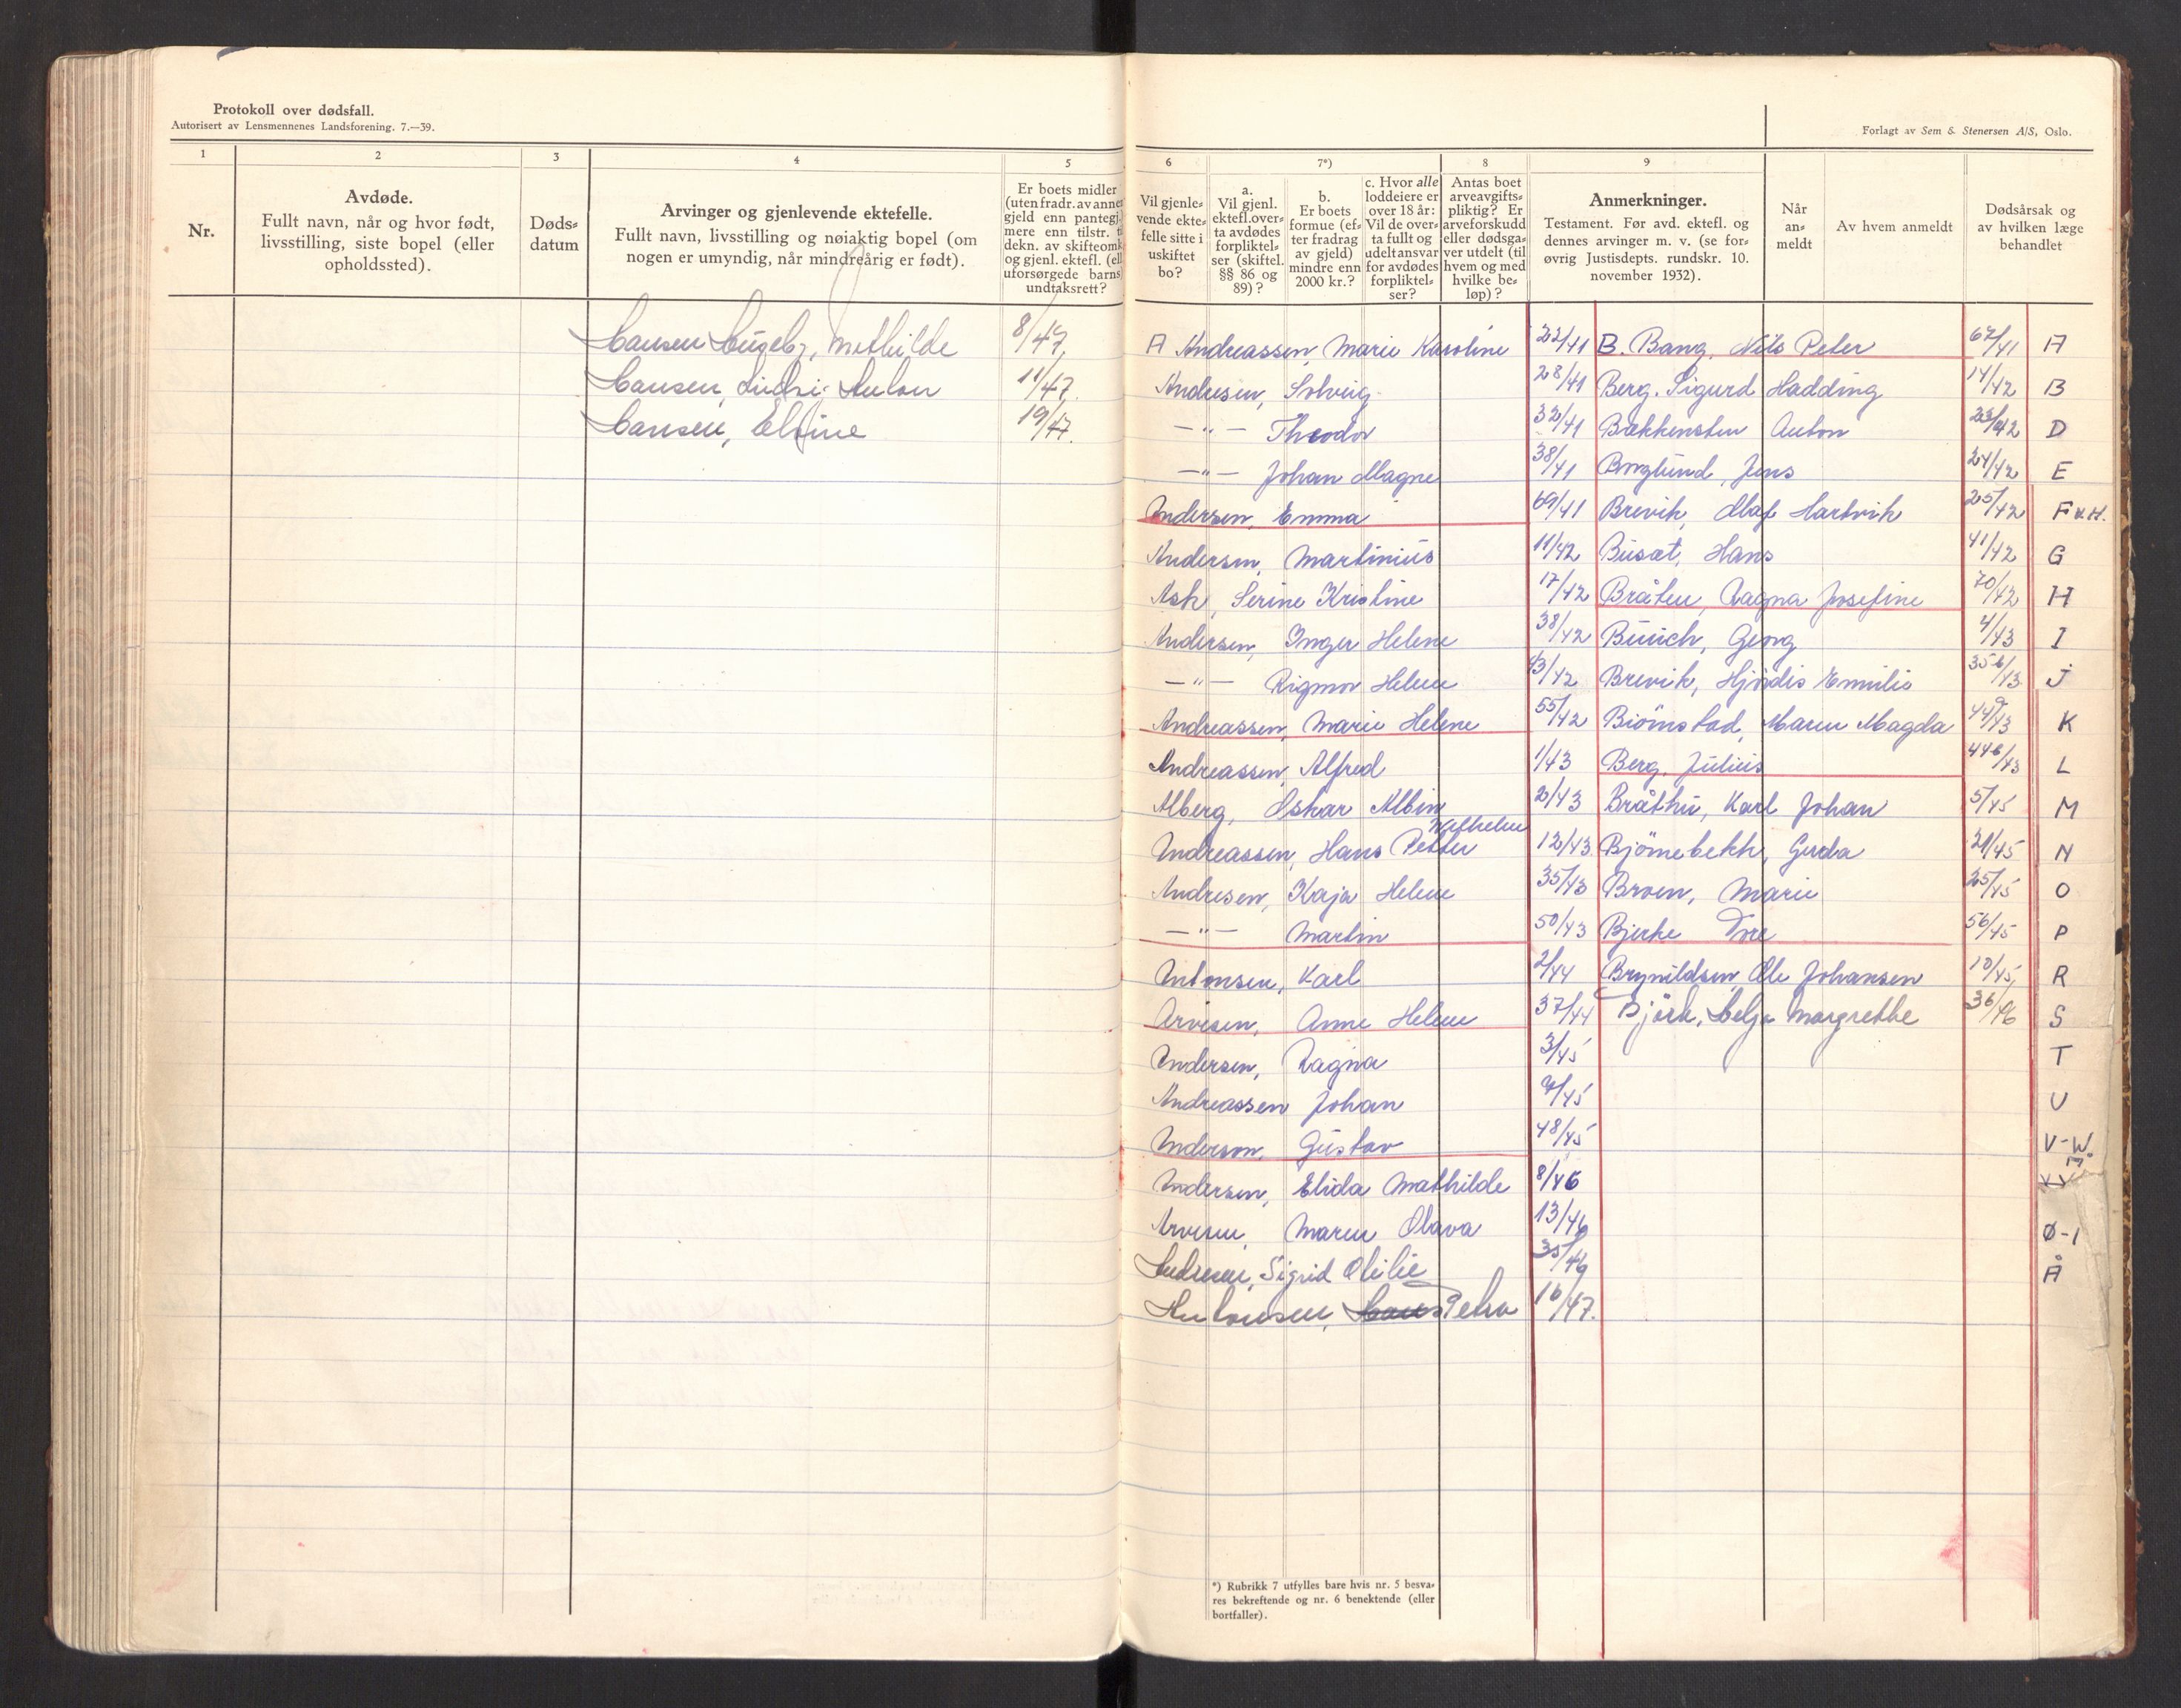 Protokoll over dødsfall.
Autorisert av Lensmennenes Landsforening. 7.—39.
Forlagt av Sem & Stenersen A/S, Oslo.
1
2
3
4
5
6
7*)
8
9
Nr.
Avdøde.
Fullt navn, når og hvor født,
livsstilling, siste bopel (eller
opholdssted).
Døds-
datum
Arvinger og gjenlevende ektefelle.
Fullt navn, livsstilling og nøiaktig bopel (om
nogen er umyndig, når mindreårig er født).
Er boets midler
(uten fradr. av annen
gjeld enn pantegj.)
mere enn tilstr. t
dekn. av skifteomk.
og gjenl. ektefl. (ell
uforsørgede barns)
undtaksrett?
Vil gjenle-
vende ekte-
felle sitte i
uskiftet
bo?
a.
Vil gjenl.
ektefl. over-
ta avdødes
forpliktel-
ser (skiftel.
§§ 86 og
89)?
b.
Er boets
formue (ef-
ter fradrag
av gjeld)
mindre enn
2000 kr.?
c. Hvor alle
loddeiere er
over 18 år:
Vil de over-
ta fullt og
udelt ansvar
for avdødes
forpliktel-
ser?
Antas boet
arveavgifts-
pliktig? Er
arveforskudd
eller dødsga-
ver utdelt (til
hvem og med
hvilke be-
løp)?
Anmerkninger.
Testament. Før avd. ektefl. og
dennes arvinger m. v. (se for-
øvrig Justisdepts. rundskr. 10.
november 1932).
Når
an-
meldt
Av hvem anmeldt
Dødsårsak og
av hvilken læge
behandlet
Hansen Ingeb, Mathilde 8/47
Hansen, Anton 11/47
Hansen, Elfine 19/47.
A Andreassen, Marie Karoline 22/41 B. Bang, Nils Peter 67/41 A
Andresen, Solveig 28/41 Berg, Sigurd Hadding 14/42 B
—"— Theodor 32/41 Bakkensten Anton 23/42 D
—"— Johan Magne 38/41 Borglund, Jens 24/42 E
Andersen, Emma 69/41 Brevik, Olaf Hartvik 25/42 F v.H.
Andersen, Martinius 11/42 Busat, Hans 41/42 G
Ask, Serine Kristine 17/42 Bråten, Ragna Josefine 70/42 H
Andersen, Inger Helene 38/42 Buuch, Georg 4/43 I
—"— Rigmor Helene 43/42 Brevik, Hjördis Emilie 35b/43 J
Andreassen, Marie Helene 55/42 Björnstad, Maren Magda 44a/43 K
Andreassen, Alfred 1/43 Berg, Julius 44b/43 L
Alberg, Oskar Albin 2/43 Bråthu, Karl Johan 5/45 M
Wilhelm
Andreassen, Hans Petter 12/43 Björnebekk, Gerda 21/45 N
Andresen, Kaja Helene 35/43 Broen, Marie 25/45 O
—"— Martin 50/43 Bjerke Tore 56/45 P
Antonsen, Karl 2/44 Brynildsen, Ole Johansen 10/45 R
Arvesen, Anne Helene 37/44 Björk, Helga Margrethe 36/46 S
Andersen, Ragna 3/45 T
Andreassen Johan 9/45 U
Anderson, Gustav 48/45 V-W
Andersen, Elida Mathilde 8/46
Arvesen, Maren Olava 13/46 Ø-1
Andresen, Sigrid Otilie 35/46 Å
Antonsen, Petra 16/47.
*) Rubrikk 7 utfylles bare hvis nr. 5 besva-
res bekreftende og nr. 6 benektende (eller
bortfaller).